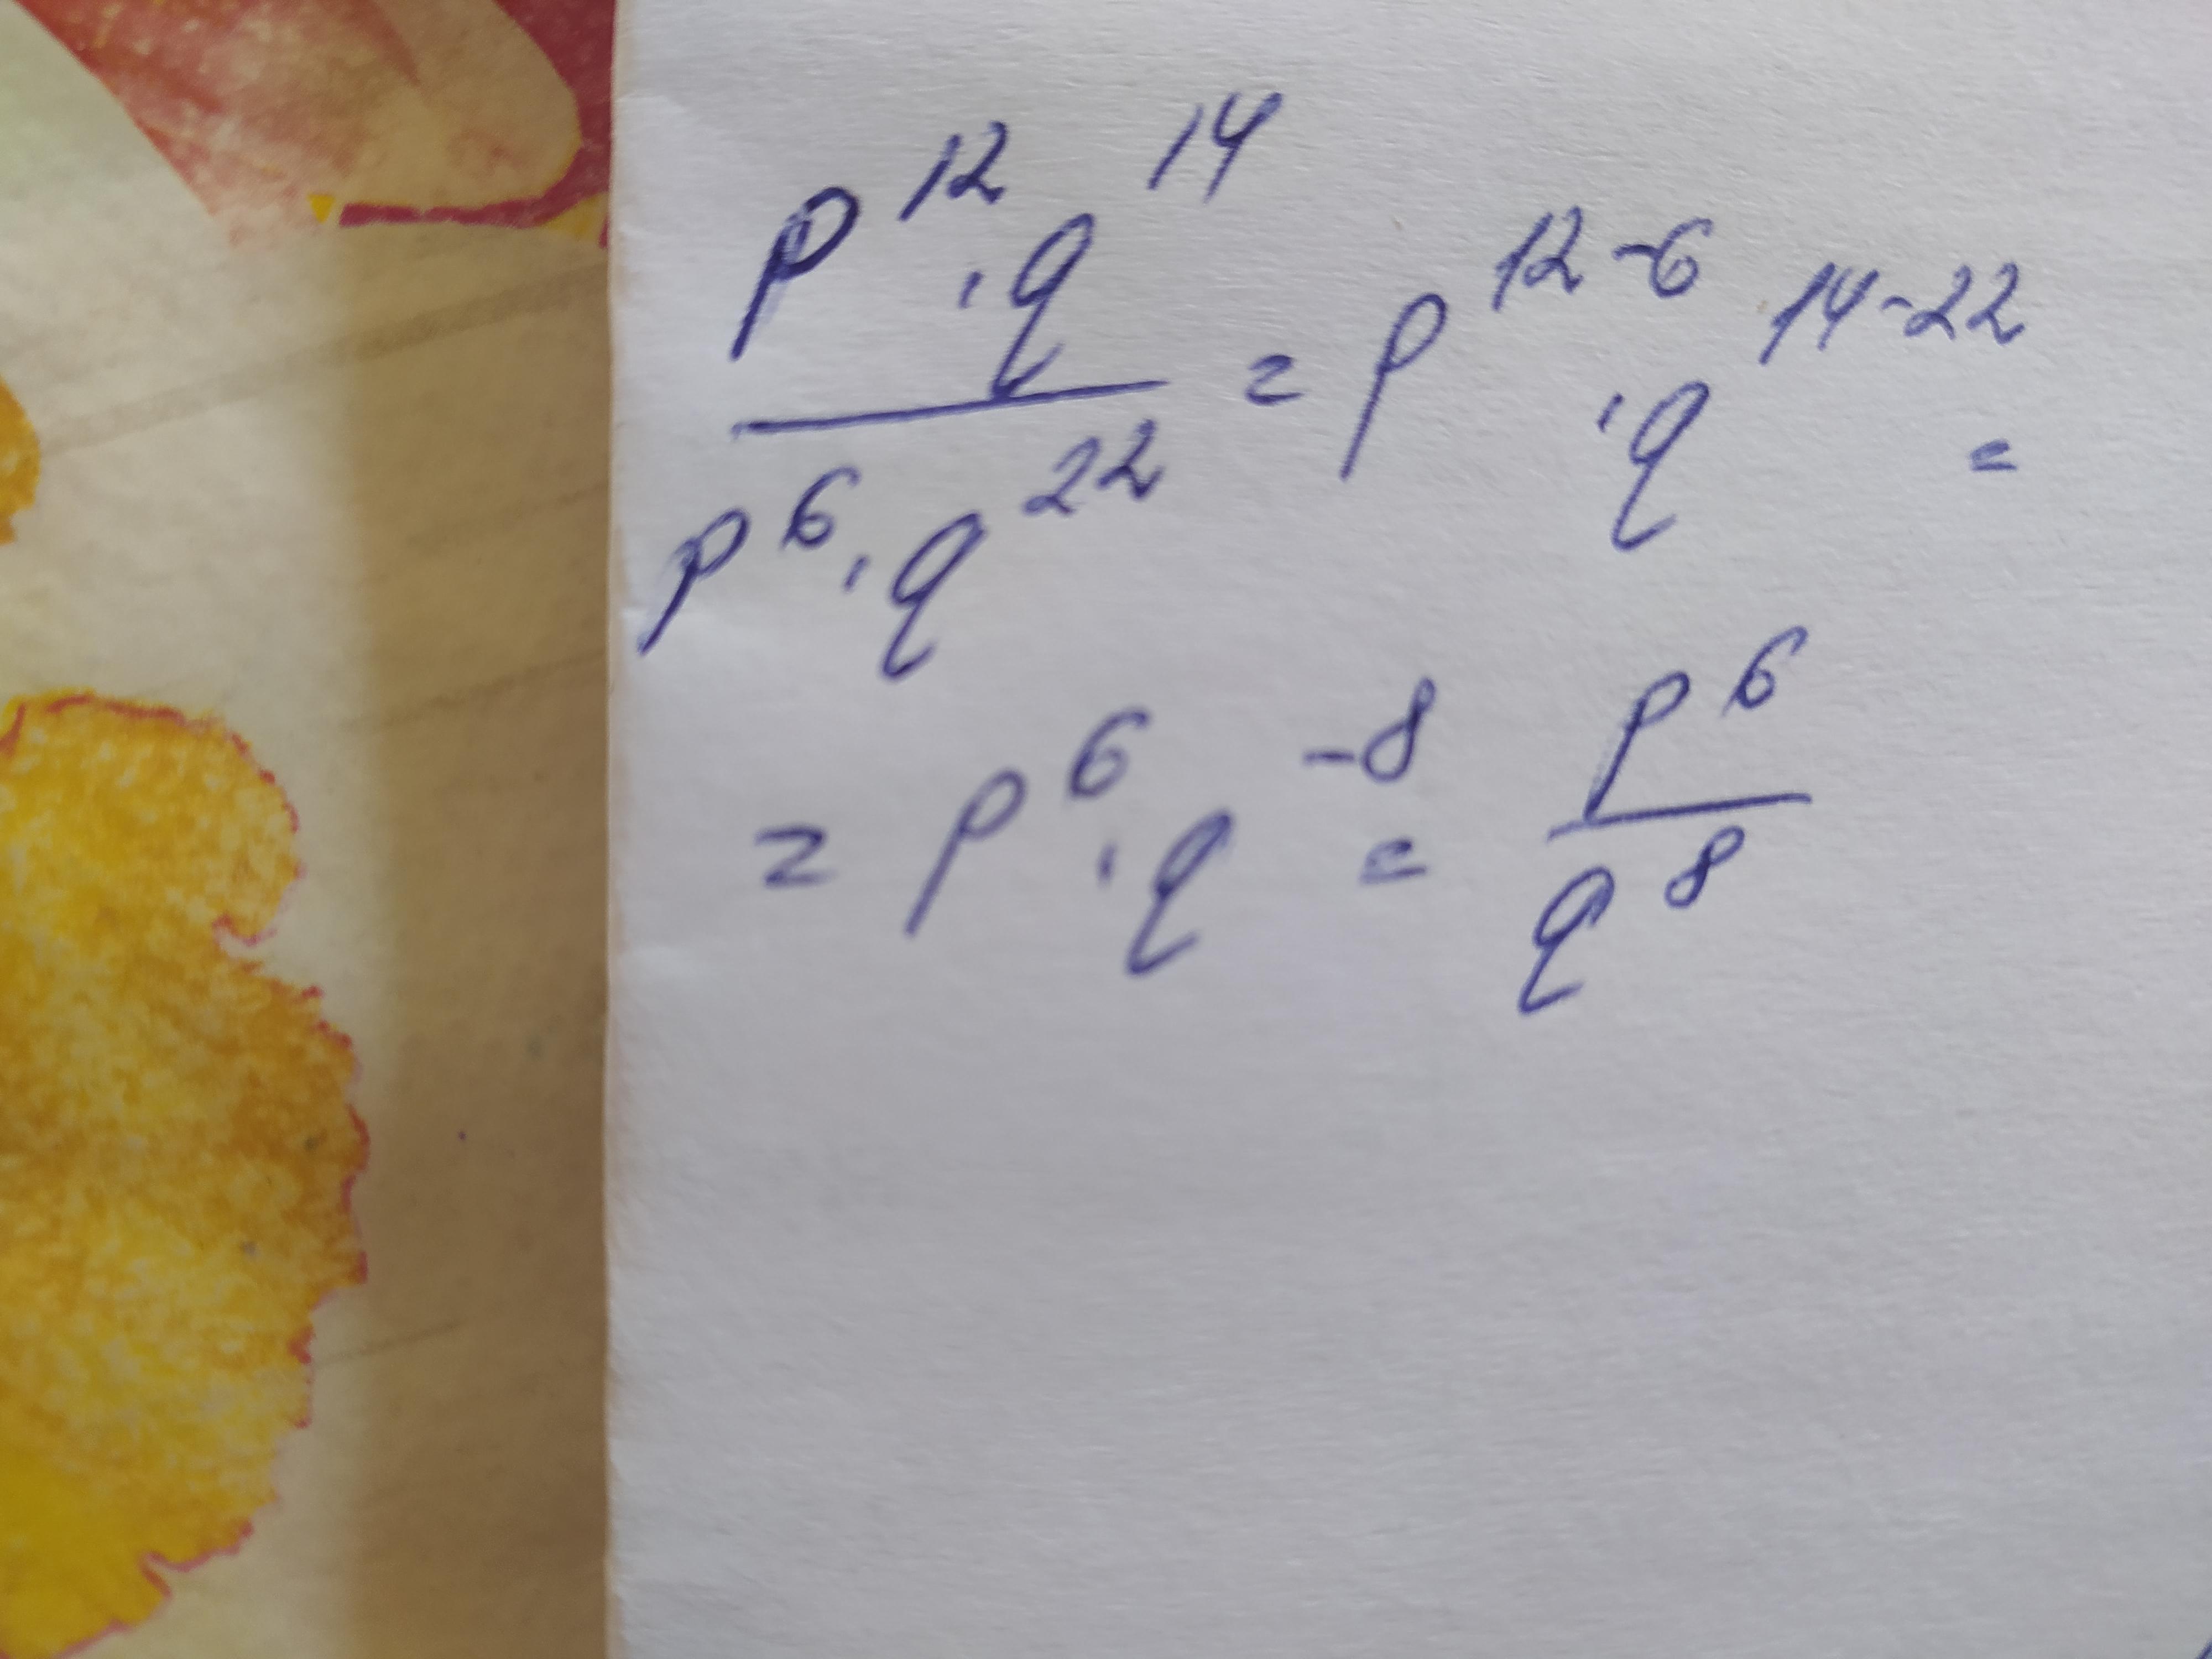 p^12 · q^14 / p^6 · q^22 = p^12-6 · q^14-22 =
= p^6 · q^-8 = p^6 / q^8